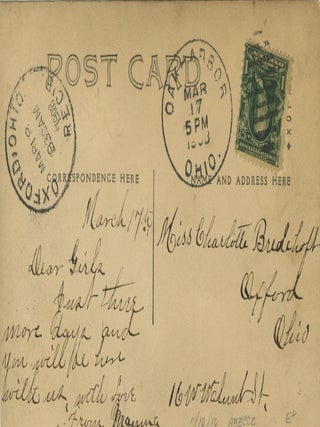 POST CARD
OXFORD, OHIO.
MAR 18
830AM
1908
REC'D.
OAK HARBOR
MAR
17
5 PM
1908
OHIO.
CORRESPONDENCE HERE
NAME AND ADDRESS HERE
March 17
Dear Girls
Just three
more days and
you will be here
with us, with love
From Mamma
Miss Charlotte Bredehoft
Oxford
Ohio
16 W Walnut St.